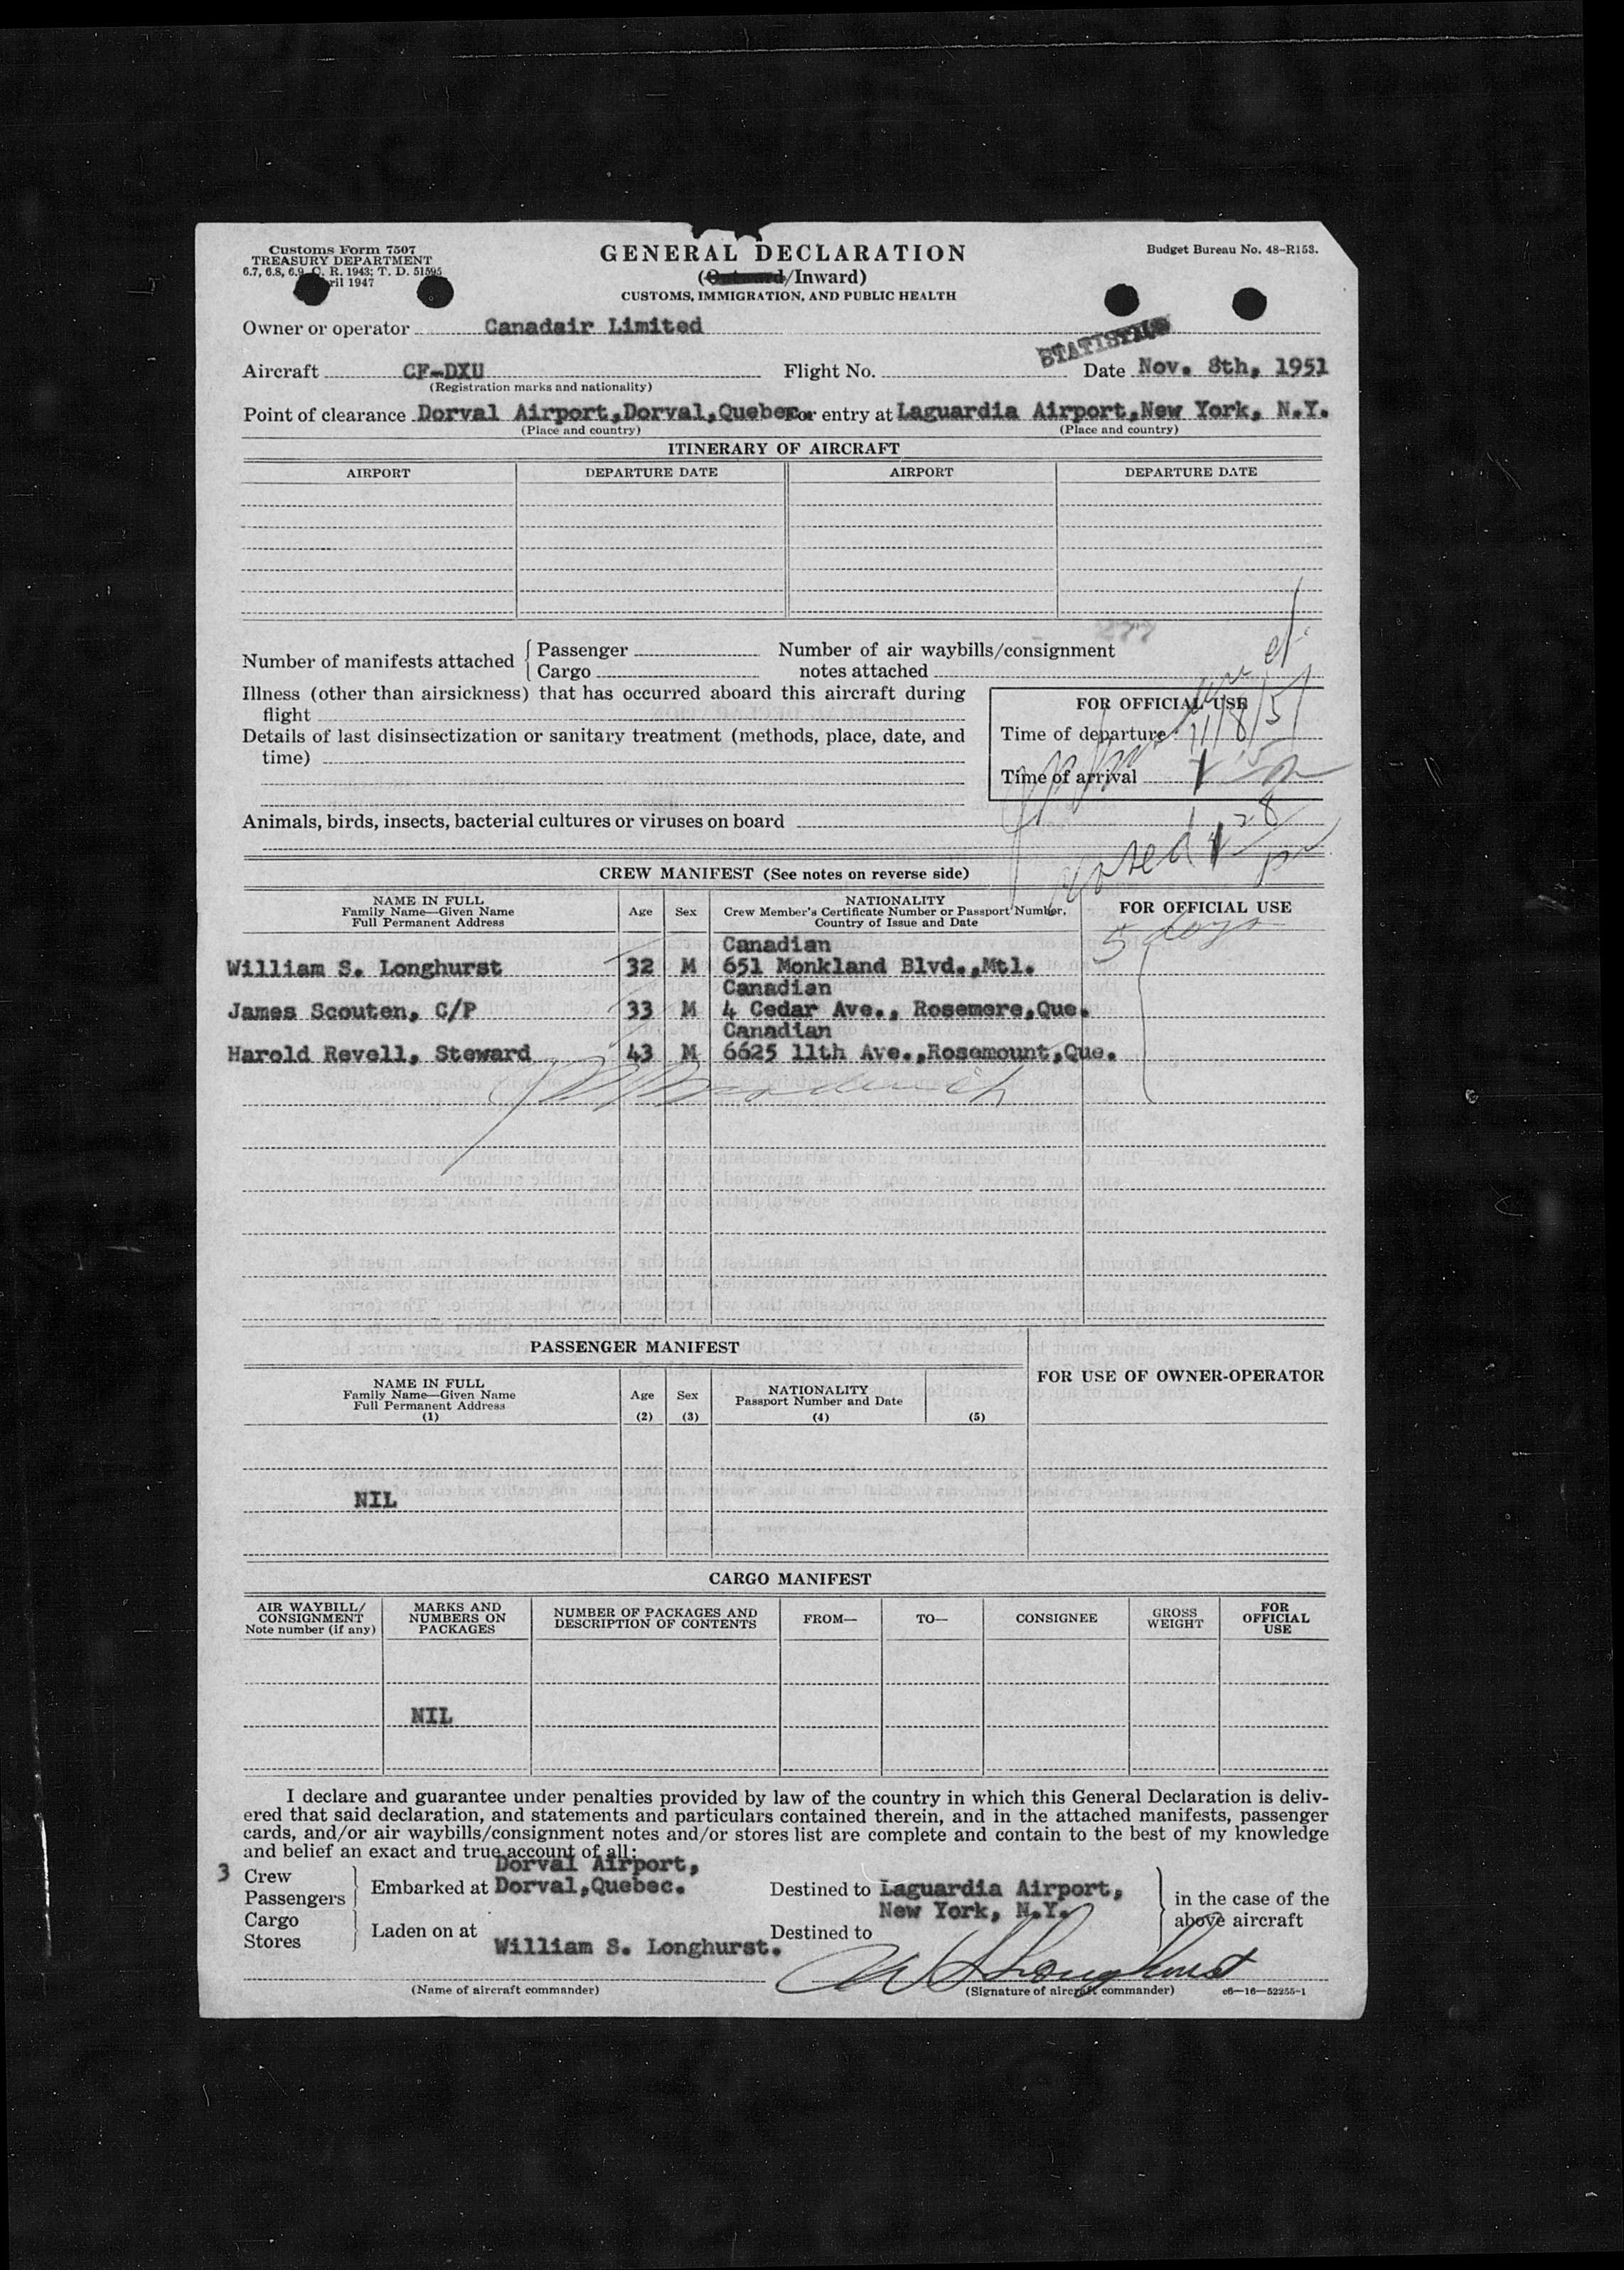 Customs Form 7507
TREASURY DEPARTMENT
6.7, 6.8, 6.9, C. R. 1943; T. D. 51595
ril 1947
GENERAL DECLARATION
(Outward/Inward)
CUSTOMS, IMMIGRATION, AND PUBLIC HEALTH
Budget Bureau No. 48-R153.
Owner or operator Canadair Limited
STATISTICS
Aircraft CF-DXU Flight No. Date Nov. 8th, 1951
(Registration marks and nationality)
Point of clearance Dorval Airport,Dorval,Quebec. For entry at Laguardia Airport,New York, N.Y.
(Place and country) (Place and country)
ITINERARY OF AIRCRAFT
AIRPORT DEPARTURE DATE AIRPORT DEPARTURE DATE
277
Number of manifests attached { Passenger Number of air waybills/consignment
Cargo notes attached
Illness (other than airsickness) that has occurred aboard this aircraft during
flight
Details of last disinsectization or sanitary treatment (methods, place, date, and
time)
FOR OFFICIAL USE
Time of departure 11/8/51
Time of arrival
Animals, birds, insects, bacterial cultures or viruses on board
CREW MANIFEST (See notes on reverse side)
NAME IN FULL
Family Name—Given Name
Full Permanent Address
Age Sex
NATIONALITY
Crew Member's Certificate Number or Passport Number,
Country of Issue and Date
FOR OFFICIAL USE
5 days
Canadian
William S. Longhurst 32 M 651 Monkland Blvd.,Mtl.
Canadian
James Scouten, C/P 33 M 4 Cedar Ave., Rosemere,Que.
Canadian
Harold Revell, Steward 43 M 6625 11th Ave.,Rosemount,Que.
PASSENGER MANIFEST
FOR USE OF OWNER-OPERATOR
NAME IN FULL
Family Name—Given Name
Full Permanent Address
(1)
Age
(2)
Sex
(3)
NATIONALITY
Passport Number and Date
(4)
(5)
NIL
CARGO MANIFEST
AIR WAYBILL/
CONSIGNMENT
Note number (if any)
MARKS AND
NUMBERS ON
PACKAGES
NUMBER OF PACKAGES AND
DESCRIPTION OF CONTENTS
FROM—
TO—
CONSIGNEE
GROSS
WEIGHT
FOR
OFFICIAL
USE
NIL
I declare and guarantee under penalties provided by law of the country in which this General Declaration is deliv-
ered that said declaration, and statements and particulars contained therein, and in the attached manifests, passenger
cards, and/or air waybills/consignment notes and/or stores list are complete and contain to the best of my knowledge
and belief an exact and true account of all:
3 Crew
Passengers
Cargo
Stores
Dorval Airport,
Embarked at Dorval,Quebec.
Laden on at
Destined to Laguardia Airport,
New York, N.Y.
Destined to
in the case of the
above aircraft
William S. Longhurst.
W S Longhurst
(Name of aircraft commander) (Signature of aircraft commander) c6—16—52255-1